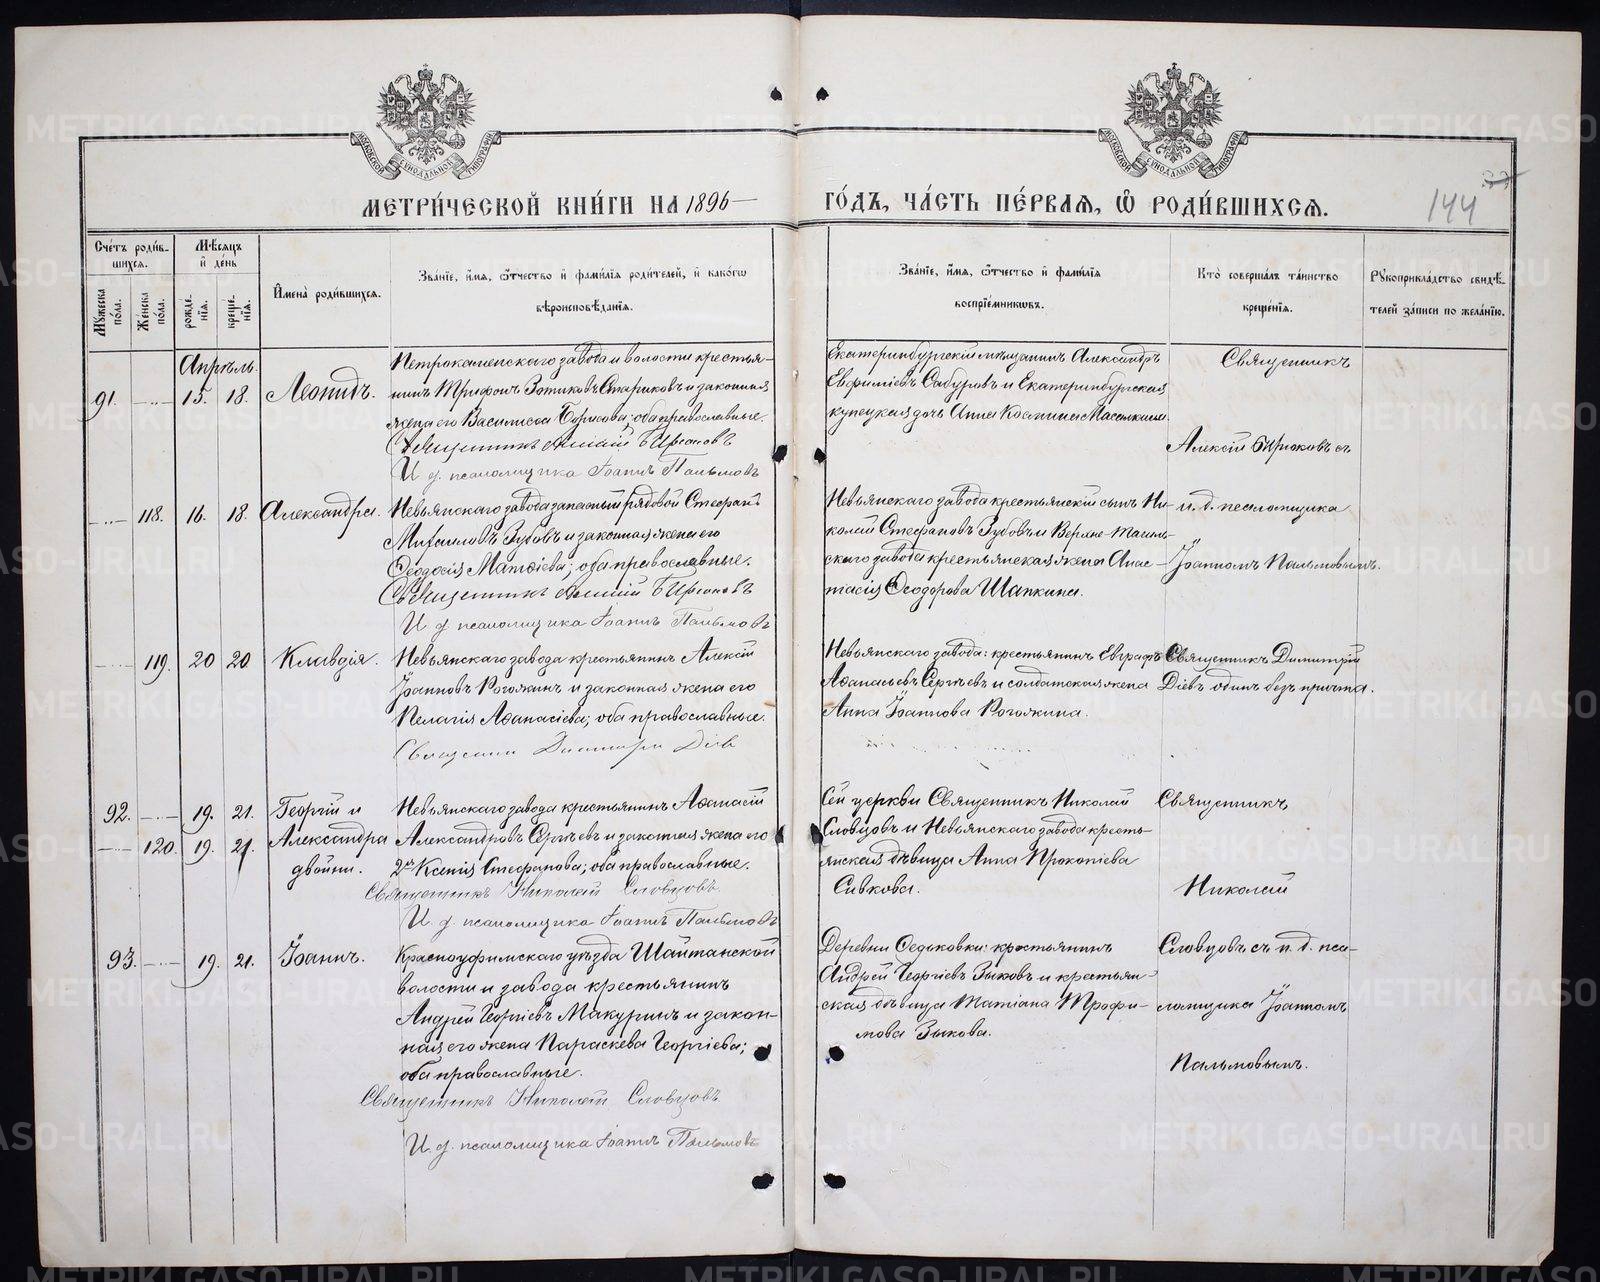 МЕТРИ́ЧЕСКОЙ КНИ́ГИ НА 1896
ГО́ДЪ, ЧА́СТЬ ПЕ́РВАЯ, Ѿ РОДИ́ВШИХСЯ.
144
Сче́тъ роди́в-
шихся.
Мѣ́сяцъ
и҆ де́нь
Мꙋ́жеска по́ла.
Же́нска по́ла.
рожде́нїѧ.
креще́нїѧ.
И҆мена̀ роди́вшихся.
Зва́нїе, и҆́мѧ, ѻ҆́тчество и҆ фами́лїѧ роди́телей, и҆ како́гѡ
вѣроисповѣ́данїѧ.
Зва́нїе, и҆́мѧ, ѻ҆́тчество и҆ фами́лїѧ
воспрїе́мникѡвъ.
Кто̀ соверша́лъ та́инство
креще́нїѧ.
Рꙋкоприкла́дство свидѣ́-
телей за́писи по жела́нїю.
Апрѣль.
91. 15. 18. Леонидъ.
Петрокаменскаго завода и волости крестья-
нинъ Трифонъ Зотиковъ Стариковъ и законная
жена его Василисса Борисова; оба православные.
Священникъ Алексій Бирюковъ
И. д. псаломщика Іоаннъ Пальмовъ
Екатеринбургскій мѣщанинъ Александръ
Евфиміевъ Сабуровъ и Екатеринбургская
купецкая дочь Анна Козмина
Священникъ
Алексій Бирюковъ съ
118. 16. 18. Александра.
Невьянскаго завода запасный рядовой Стефанъ
Михаиловъ Зубовъ и законная жена его
Ѳеодосія Матѳіева; оба православные.
Священникъ Алексій Бирюковъ
И. д. псаломщика Іоаннъ Пальмовъ
Невьянскаго завода крестьянскій сынъ Ни-
колай Стефановъ Зубовъ и Верхне-Тагиль-
скаго завода крестьянская жена Анас-
тасія Ѳеодорова Шапкина.
и. д. псаломщика
Іоанномъ Пальмовымъ.
119. 20 20. Клавдія.
Невьянскаго завода крестьянинъ Алексій
Іоанновъ Рогожинъ и законная жена его
Пелагія Аѳанасіева; оба православные.
Священникъ Димитрій Діевъ
Невьянскаго завода: крестьянинъ Евграфъ
Аѳанасьевъ Сергѣевъ и солдатская жена
Анна Іоаннова Рогожина.
Священникъ Димитрій
Діевъ одинъ безъ причта.
92. 19. 21. Георгій и
120. 19. 21. Александра
двойни.
Невьянскаго завода крестьянинъ Аѳанасій
Александровъ Сергѣевъ и законная жена его
Ксенія Стефанова; оба православные.
Священникъ Николай Словцовъ.
И. д. псаломщика Іоаннъ Пальмовъ
Сей церкви Священникъ Николай
Словцовъ и Невьянскаго завода кресть-
янская дѣвица Анна Прокопіева
Сивкова.
Священникъ
Николай
93. 19. 21. Іоаннъ.
Красноуфимскаго уѣзда Шайтанской
волости и завода крестьянинъ
Андрей Георгіевъ Макуринъ и закон-
ная его жена Параскева Георгіева;
оба православные.
Священникъ Николай Словцовъ
И. д. псаломщика Іоаннъ Пальмовъ
Деревни Ѳедьковки: крестьянинъ
Андрей Георгіевъ Зыковъ и крестьян-
ская дѣвица Татіана Трофи-
мова Зыкова.
Словцовъ съ и. д. пса-
ломщика Іоанномъ
Пальмовымъ.